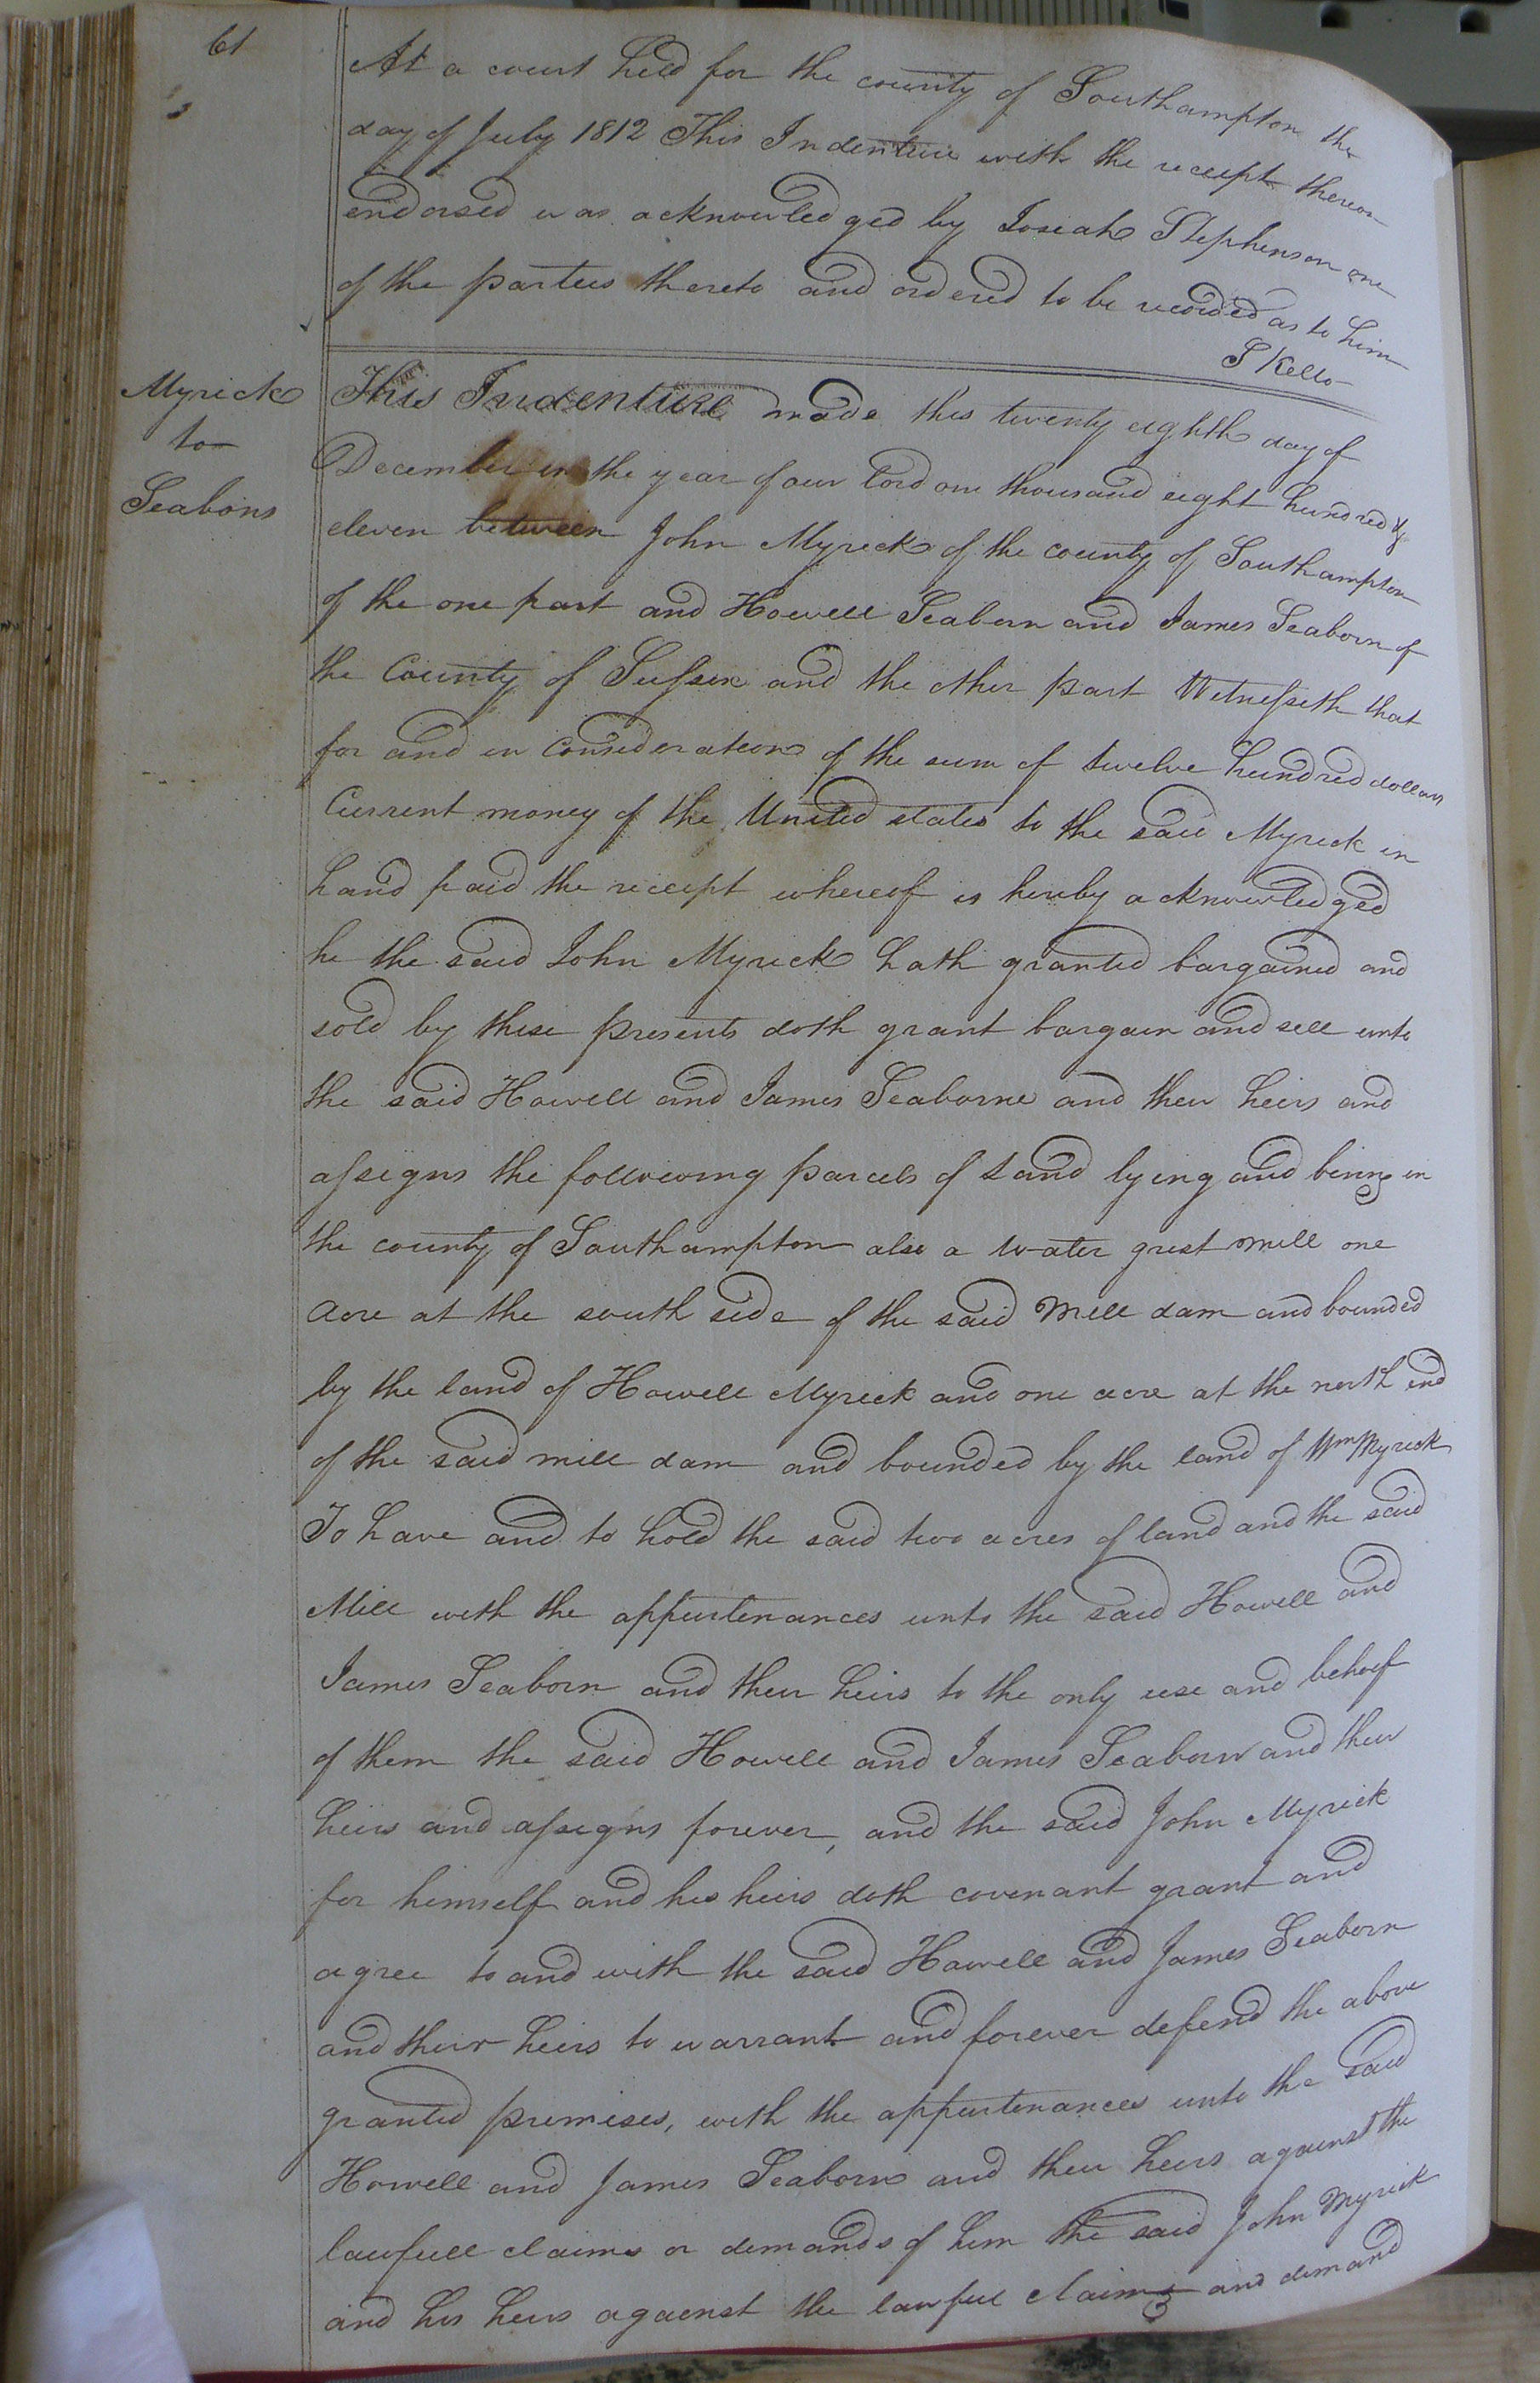 61
At a court held for the county of Southampton the
day of July 1812 This Indenture with the receipt thereon
endorsed was acknowledged by Josiah Stephenson one
of the parties thereto and ordered to be recorded as to him
S Kello
Myrick
to
Seabons
This Indenture made this twenty eighth day of
December in the year of our Lord one thousand eight hundred &
eleven between John Myrick of the county of Southampton
of the one part and Howell Seaborn and James Seaborn of
the County of Sussex and the other part Witnesseth that
for and in Consideration of the sum of twelve hundred dollars
Current money of the United states to the said Myrick in
hand paid the receipt whereof is hereby acknowledged
he the said John Myrick hath granted bargained and
sold by these presents doth grant bargain and sell unto
the said Howell and James Seaborne and their heirs and
assigns the following parcels of Land lying and being in
the county of Southampton also a water grist mill one
acre at the south side of the said Mill dam and bounded
by the land of Howell Myrick and one acre at the north end
of the said mill dam and bounded by the land of Wm Myrick
To have and to hold the said two acres of land and the said
Mill with the appurtenances unto the said Howell and
James Seaborn and their heirs to the only use and behoof
of them the said Howell and James Seaborn and their
heirs and assigns forever, and the said John Myrick
for himself and his heirs doth covenant grant and
agree to and with the said Howell and James Seaborn
and their heirs to warrant and forever defend the above
granted premises, with the appurtenances unto the said
Howell and James Seaborn and their heirs against the
lawfull claims or demands of him the said John Myrick
and his heirs against the lawfull claims and demand